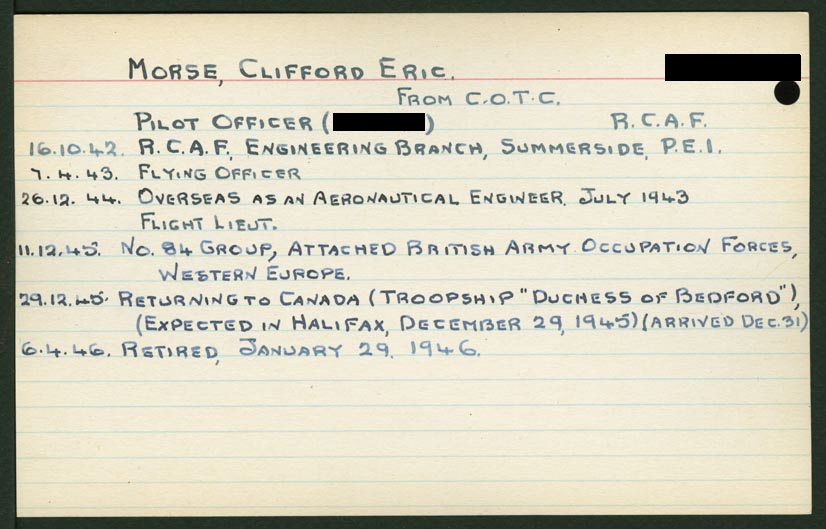 MORSE, CLIFFORD ERIC.
FROM C.O.T.C.
PILOT OFFICER ( ) R.C.A.F.
16.10.42. R.C.A.F. ENGINEERING BRANCH, SUMMERSIDE, P.E.I.
7.4.43. FLYING OFFICER
26.12.44. OVERSEAS AS AN AERONAUTICAL ENGINEER, JULY 1943
FLIGHT LIEUT.
11.12.45. NO. 84 GROUP, ATTACHED BRITISH ARMY OCCUPATION FORCES,
WESTERN EUROPE.
29.12.45. RETURNING TO CANADA (TROOPSHIP "DUCHESS OF BEDFORD"),
(EXPECTED IN HALIFAX, DECEMBER 29, 1945) (ARRIVED DEC.31)
6.4.46. RETIRED, JANUARY 29, 1946.